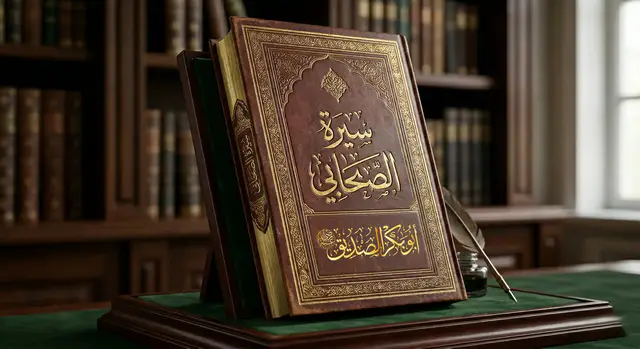 سيرة
الصحابي
أبو بكر الصديق